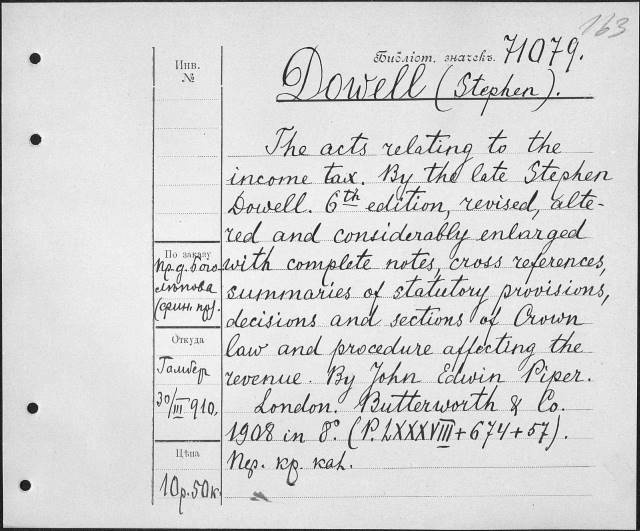 163
Библіот. значекъ. 71079.
Инв.
№
Dowell (Stephen).
The acts relating to the
income tax. By the late Stephen
Dowell. 6th edition, revised, alte-
red and considerably enlarged
with complete notes, cross references,
summaries of statutory provisions,
decisions and sections of Crown
law and procedure affecting the
revenue. By John Edwin Piper.
London. Butterworth & Co.
1908 in 8°. (P. LXXXVIII+674+57).
Пер. кр. кал.
По заказу
Пр. д. Бого
лѣпова
(фин. пр).
Откуда
Гамбер
30/III 910.
Цѣна
10р. 50к.